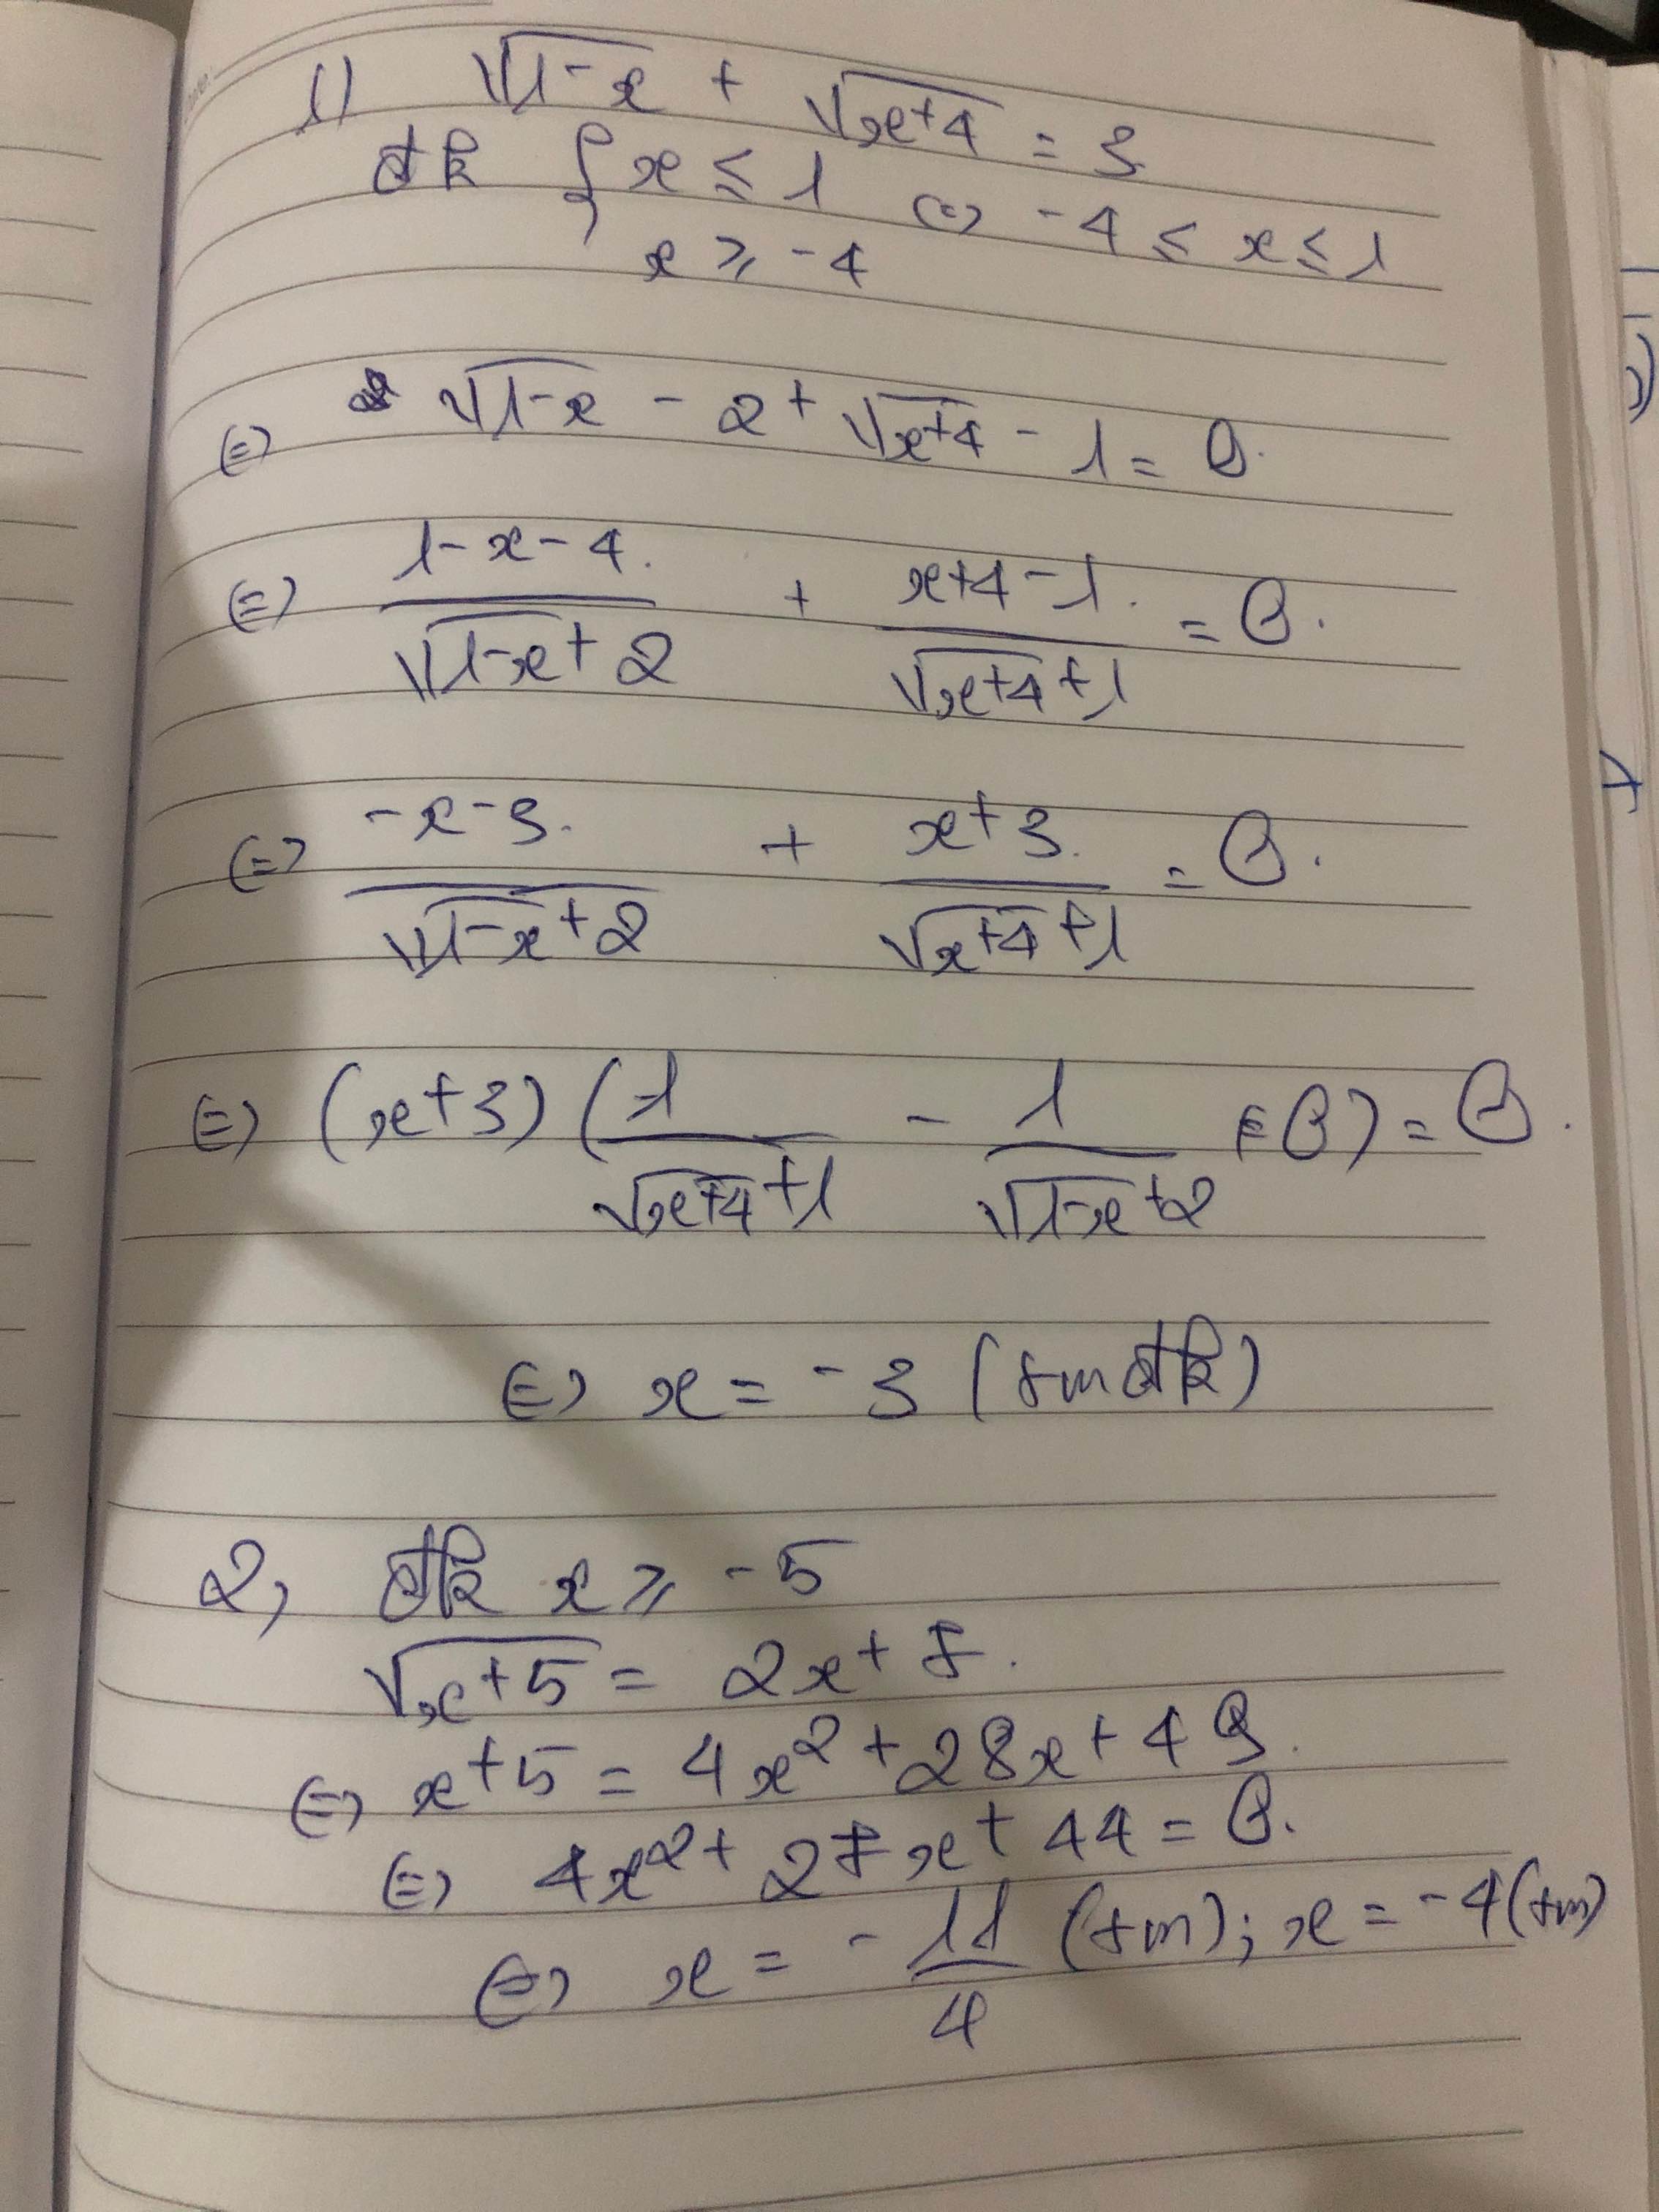 1) √(1-x) + √(x+4) = 3
đk { x ≤ 1 <=> -4 ≤ x ≤ 1
x ≥ -4
<=> √(1-x) - 2 + √(x+4) - 1 = 0.
<=> (1-x-4)/(√(1-x) + 2) + (x+4-1)/(√(x+4) + 1) = 0.
<=> (-x-3)/(√(1-x) + 2) + (x+3)/(√(x+4) + 1) = 0.
<=> (x+3) (1/(√(x+4) + 1) - 1/(√(1-x) + 2) ≠ 0) = 0.
<=> x = -3 (tm đk)
2, đk x ≥ -5
√(x+5) = 2x + 7.
<=> x + 5 = 4x² + 28x + 49.
<=> 4x² + 27x + 44 = 0.
<=> x = -11/4 (tm); x = -4 (tm)